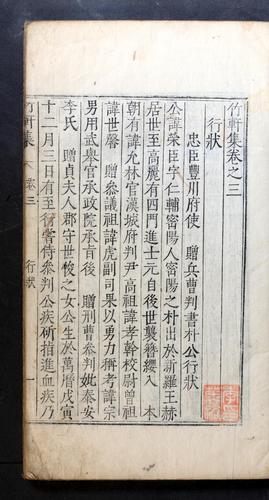 竹軒集卷之三
行狀
忠臣豐川府使 贈兵曹判書朴公行狀
公諱榮臣字仁輔密陽人密陽之朴出於新羅王赫
居世至高麗有四門進士元自後世襲簪纓入 本
朝有諱允林官漢城府判尹高祖諱孝幹校尉曾祖
諱世馨 贈參議祖諱虎副司果以勇力稱考諱宗
男用武擧官承政院承旨後 贈刑曹參判妣泰安
李氏 贈貞夫人郡守世梭之女公生於萬曆戊寅
十二月三日有至行嘗侍參判公疾斫指進血疾乃
竹軒集 卷三 行狀 一